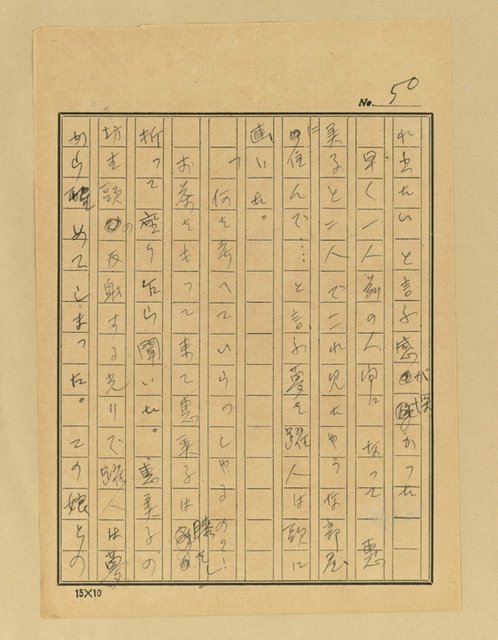 No. 50
れ出たいと言ふ感が深かつた
早く一人前の人間になつて 恵
美子と二人でこれ見たやうな部屋
に住んで…と言ふ夢を躍人は頭に
画いた。
「何を考へていらつしやるの?」
お茶をもつて来て恵美子は膝を
折つて座り乍ら聞いた。恵美子の
坊主頭の反射する光りで躍人は夢
から醒めてしまつた。この娘との
15×10